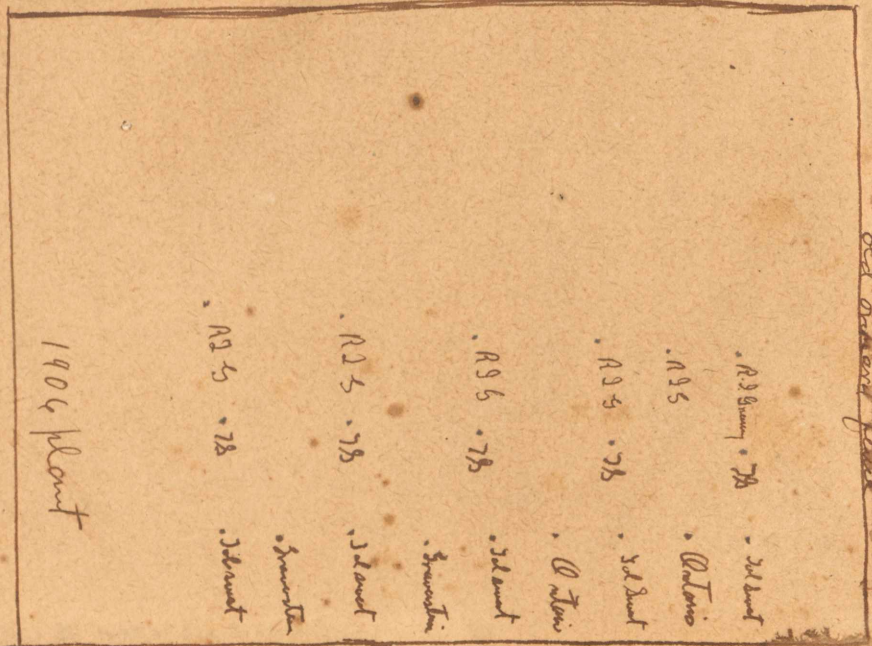 old orchard
. R.I Greening . TB . Tol Sweet
. R I G . Ontario
. R I G . TB . Tol Sweet
. Ontario
. R I G . TB . Tol Sweet
. Gravenstein
. R I G . TB . Tol Sweet
. Gravenstein
. R I G . TB . Tol Sweet
1906 plant